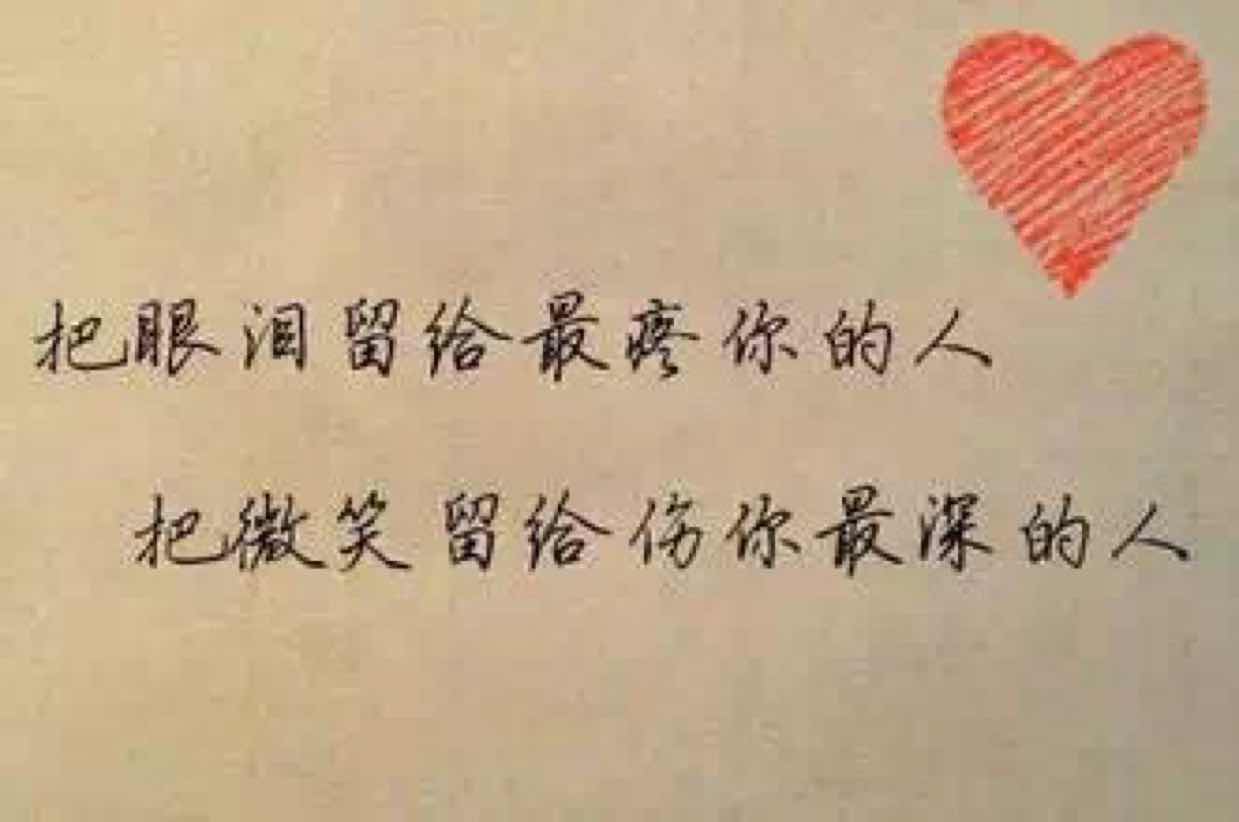 把眼泪留给最疼你的人
把微笑留给伤你最深的人